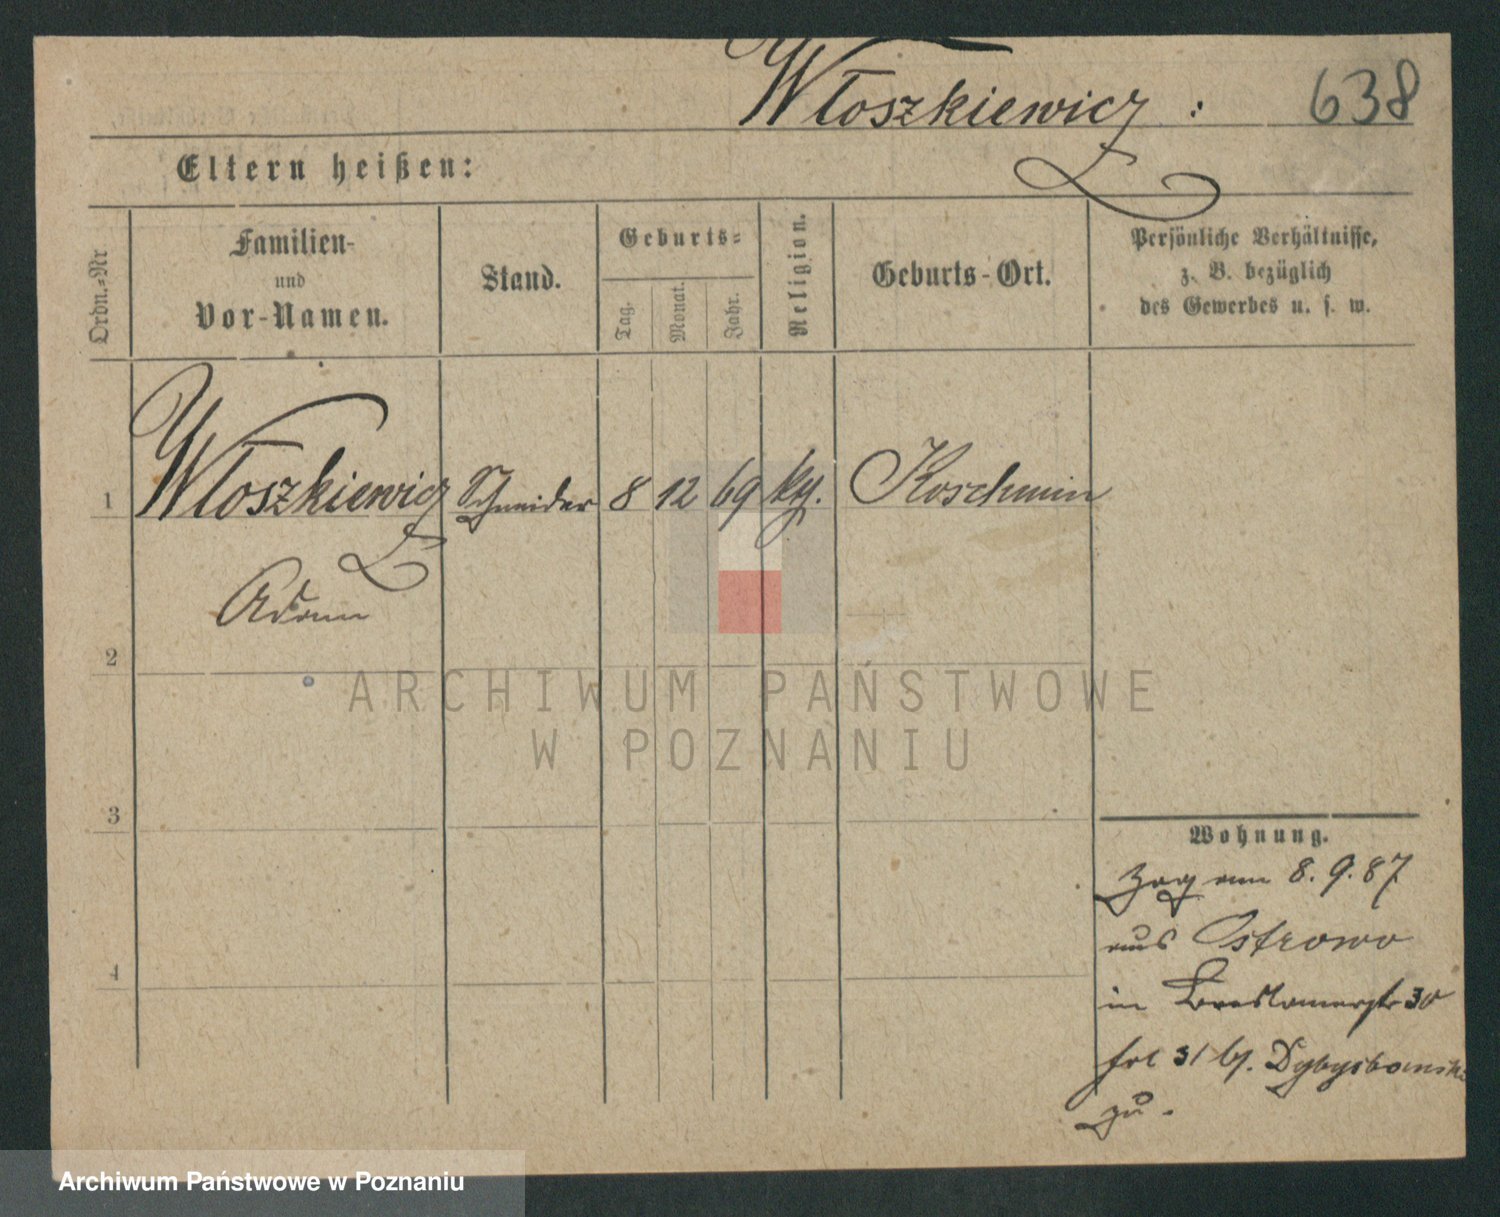 Włoszkiewicz : 638
Eltern heißen:
Ordn.-Nr
Familien-
und
Vor-Namen.
Stand.
Geburts-
Tag.
Monat.
Jahr.
Religion.
Geburts-Ort.
Persönliche Verhältnisse,
z. B. bezüglich
des Gewerbes u. s. w.
1 Włoszkiewicz Schneider 8 12 69 kth. Koschmin
Adam
2
3
4
Wohnung.
Zog am 8. 9. 87
aus Ostrowo
in Breslauerstr 30
fol 31 bj.
zu.
ARCHIWUM PAŃSTWOWE
W POZNANIU
Archiwum Państwowe w Poznaniu